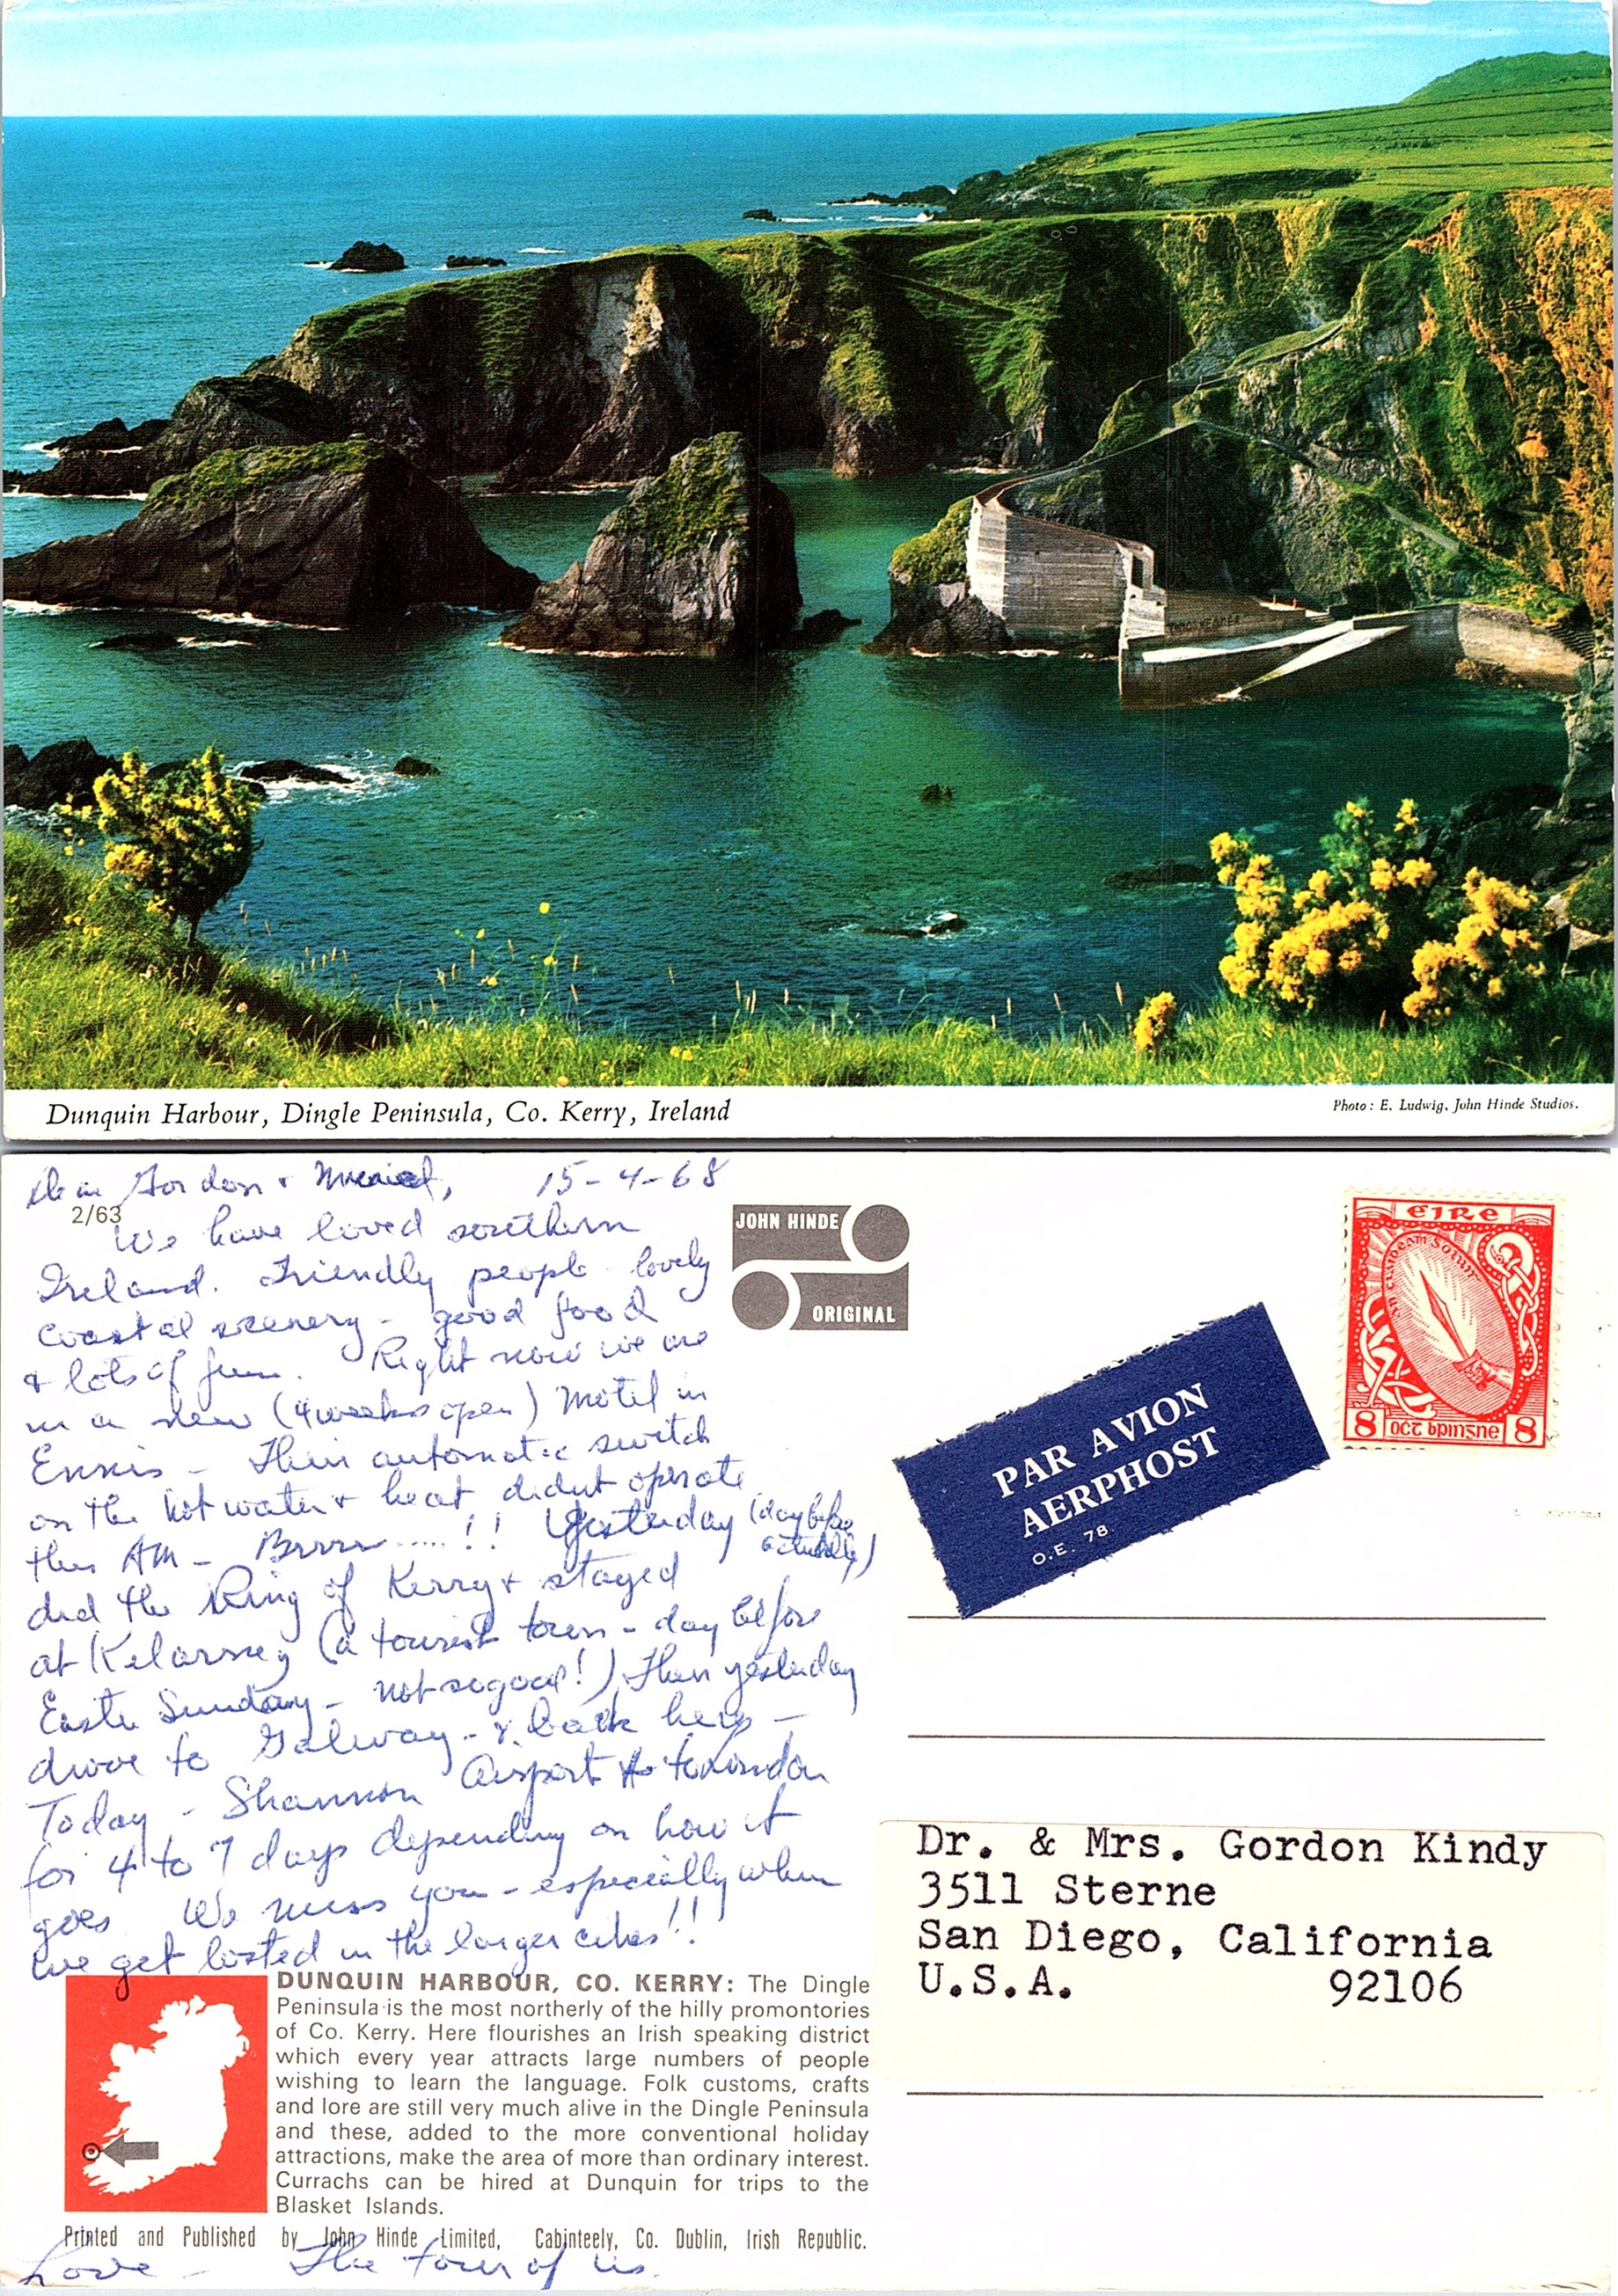 Dunquin Harbour, Dingle Peninsula, Co. Kerry, Ireland
Photo: E. Ludwig, John Hinde Studios.
Dear Gordon &
15-4-68
2/63
We have loved southern
Ireland. Friendly people lovely
coastal scenery - good food
& lots of fun. Right now we are
in a new (4 weeks open) Motel in
Ennis - Their automatic switch
on the hot water & heat didnt operate
this AM - Brrrr.....!! Yesterday (day before
actually)
did the Ring of Kerry & stayed
at Kelarney (a tourist town - day before
Easter Sunday - not so good!) Then yesterday
drove to Galway - & back here -
Today - Shannon Airport to London
for 4 to 7 days depending on how it
goes We miss you - especially when
we get losted in the larger cities!!
JOHN HINDE
ORIGINAL
EIRE
an claideam soluis
8 OCT PINGNE 8
PAR AVION
AERPHOST
O.E. 78
Dr. & Mrs. Gordon Kindy
3511 Sterne
San Diego, California
U.S.A. 92106
DUNQUIN HARBOUR, CO. KERRY: The Dingle
Peninsula is the most northerly of the hilly promontories
of Co. Kerry. Here flourishes an Irish speaking district
which every year attracts large numbers of people
wishing to learn the language. Folk customs, crafts
and lore are still very much alive in the Dingle Peninsula
and these, added to the more conventional holiday
attractions, make the area of more than ordinary interest.
Currachs can be hired at Dunquin for trips to the
Blasket Islands.
Printed and Published by John Hinde Limited, Cabinteely, Co. Dublin, Irish Republic.
Love - The four of us.